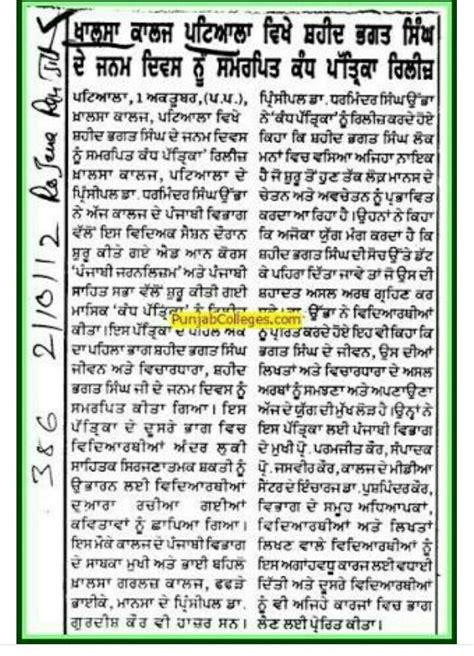 ਖਾਲਸਾ ਕਾਲਜ ਪਟਿਆਲਾ ਵਿਖੇ ਸ਼ਹੀਦ ਭਗਤ ਸਿੰਘ
ਦੇ ਜਨਮ ਦਿਵਸ ਨੂੰ ਸਮਰਪਿਤ ਕੰਧ ਪੱਤ੍ਰਿਕਾ ਰਿਲੀਜ਼
ਪਟਿਆਲਾ, 1 ਅਕਤੂਬਰ,(ਪ.ਪ.),
ਖ਼ਾਲਸਾ ਕਾਲਜ, ਪਟਿਆਲਾ ਵਿਖੇ
ਸ਼ਹੀਦ ਭਗਤ ਸਿੰਘ ਦੇ ਜਨਮ ਦਿਵਸ
ਨੂੰ ਸਮਰਪਿਤ ਕੰਧ ਪੱਤ੍ਰਿਕਾ ਰਿਲੀਜ਼
ਖ਼ਾਲਸਾ ਕਾਲਜ, ਪਟਿਆਲਾ ਦੇ
ਪ੍ਰਿੰਸੀਪਲ ਡਾ. ਧਰਮਿੰਦਰ ਸਿੰਘ ਉੱਭਾ
ਨੇ ਅੱਜ ਕਾਲਜ ਦੇ ਪੰਜਾਬੀ ਵਿਭਾਗ
ਵੱਲੋਂ ਇਸ ਵਿਦਿਅਕ ਸੈਸ਼ਨ ਦੌਰਾਨ
ਸ਼ੁਰੂ ਕੀਤੇ ਗਏ ਐਡ ਆਨ ਕੋਰਸ
'ਪੰਜਾਬੀ ਜਰਨਲਿਜ਼ਮ' ਅਤੇ ਪੰਜਾਬੀ
ਸਾਹਿਤ ਸਭਾ ਵੱਲੋਂ ਸ਼ੁਰੂ ਕੀਤੀ ਗਈ
ਮਾਸਿਕ 'ਕੰਧ
ਕੀਤਾ।ਇਸ ਪੱਤ੍ਰਿਕਾ ਦੇ ਪਹਿਲੇ ਅੰਕ
ਦਾ ਪਹਿਲਾ ਭਾਗ ਸ਼ਹੀਦ ਭਗਤ ਸਿੰਘ
ਜੀਵਨ ਅਤੇ ਵਿਚਾਰਧਾਰਾ, ਸ਼ਹੀਦ
ਭਗਤ ਸਿੰਘ ਜੀ ਦੇ ਜਨਮ ਦਿਵਸ ਨੂੰ
ਸਮਰਪਿਤ ਕੀਤਾ ਗਿਆ। ਇਸ
ਪੱਤ੍ਰਿਕਾ ਦੇ ਦੂਸਰੇ ਭਾਗ ਵਿਚ
ਵਿਦਿਆਰਥੀਆਂ ਅੰਦਰ ਲੁਕੀ
ਸਾਹਿਤਕ ਸਿਰਜਣਾਤਮਕ ਸ਼ਕਤੀ ਨੂੰ
ਉਭਾਰਨ ਲਈ ਵਿਦਿਆਰਥੀਆਂ
ਦੁਆਰਾ ਰਚੀਆ ਗਈਆਂ
ਕਵਿਤਾਵਾਂ ਨੂੰ ਛਾਪਿਆ ਗਿਆ।
ਇਸ ਮੌਕੇ ਕਾਲਜ ਦੇ ਪੰਜਾਬੀ ਵਿਭਾਗ
ਦੇ ਸਾਬਕਾ ਮੁਖੀ ਅਤੇ ਭਾਈ ਬਹਿਲੋ
ਖ਼ਾਲਸਾ ਗਰਲਜ਼ ਕਾਲਜ, ਫਫੜੇ
ਭਾਈਕੇ, ਮਾਨਸਾ ਦੇ ਪ੍ਰਿੰਸੀਪਲ ਡਾ.
ਗੁਰਦੀਸ਼ ਕੌਰ ਵੀ ਹਾਜ਼ਰ ਸਨ।
ਪ੍ਰਿੰਸੀਪਲ ਡਾ. ਧਰਮਿੰਦਰ ਸਿੰਘ ਉੱਭਾ
ਨੇ 'ਕੰਧ ਪੱਤ੍ਰਿਕਾ' ਨੂੰ ਰਿਲੀਜ਼ ਕਰਦੇ ਹੋਏ
ਕਿਹਾ ਕਿ ਸ਼ਹੀਦ ਭਗਤ ਸਿੰਘ ਲੋਕ
ਮਨਾਂ ਵਿਚ ਵਸਿਆ ਅਜਿਹਾ ਨਾਇਕ
ਹੈ ਜੋ ਸ਼ੁਰੂ ਤੋਂ ਹੁਣ ਤੱਕ ਲੋਕ ਮਾਨਸ ਦੇ
ਚੇਤਨ ਅਤੇ ਅਵਚੇਤਨ ਨੂੰ ਪ੍ਰਭਾਵਿਤ
ਕਰਦਾ ਆ ਰਿਹਾ ਹੈ।ਉਹਨਾਂ ਨੇ ਕਿਹਾ
ਕਿ ਅਜੋਕਾ ਯੁੱਗ ਮੰਗ ਕਰਦਾ ਹੈ ਕਿ
ਸ਼ਹੀਦ ਭਗਤ ਸਿੰਘ ਦੀ ਸੋਚ ਉੱਤੇ ਡੱਟ
ਕੇ ਪਹਿਰਾ ਦਿੱਤਾ ਜਾਵੇ ਤਾਂ ਜੋ ਉਸ ਦੀ
ਸ਼ਹਾਦਤ ਅਸਲ ਅਰਥ ਗ੍ਰਹਿਣ ਕਰ
ਉੱਭਾ ਨੇ ਵਿਦਿਆਰਥੀਆਂ
ਨੂੰ ਪ੍ਰੇਰਿਤ ਕਰਦੇ ਹੋਏ ਇਹ ਵੀ ਕਿਹਾ ਕਿ
ਭਗਤ ਸਿੰਘ ਦੇ ਜੀਵਨ, ਉਸ ਦੀਆਂ
ਲਿਖਤਾਂ ਅਤੇ ਵਿਚਾਰਧਾਰਾ ਦੇ ਅਸਲ
ਅਰਥਾਂ ਨੂੰ ਸਮਝਣਾ ਅਤੇ ਅਪਣਾਉਣਾ
ਅੱਜ ਦੇ ਯੁੱਗ ਦੀ ਮੁੱਖ ਲੋੜ ਹੈ।ਉਨ੍ਹਾਂ ਨੇ
ਇਸ ਪੱਤ੍ਰਿਕਾ ਲਈ ਪੰਜਾਬੀ ਵਿਭਾਗ
ਦੇ ਮੁਖੀ ਪ੍ਰੋ. ਪਰਮਜੀਤ ਕੌਰ, ਸੰਪਾਦਕ
ਪ੍ਰੋ. ਜਸਵੀਰ ਕੌਰ, ਕਾਲਜ ਦੇ ਮੀਡੀਆ
ਸੈਂਟਰ ਦੇ ਇੰਚਾਰਜ ਡਾ. ਪੁਸ਼ਪਿੰਦਰ ਕੌਰ,
ਵਿਭਾਗ ਦੇ ਸਮੂਹ ਅਧਿਆਪਕਾਂ,
ਵਿਦਿਆਰਥੀਆਂ ਅਤੇ ਲਿਖਤਾਂ
ਲਿਖਣ ਵਾਲੇ ਵਿਦਿਆਰਥੀਆਂ ਨੂੰ
ਇਸ ਅਗਾਂਹਵਧੂ ਕਾਰਜ ਲਈ ਵਧਾਈ
ਦਿੱਤੀ ਅਤੇ ਦੂਸਰੇ ਵਿਦਿਆਰਥੀਆਂ
ਨੂੰ ਵੀ ਅਜਿਹੇ ਕਾਰਜਾਂ ਵਿਚ ਭਾਗ
ਲੈਣ ਲਈ ਪ੍ਰੇਰਿਤ ਕੀਤਾ।
PunjabColleges.com
386 2/10/12